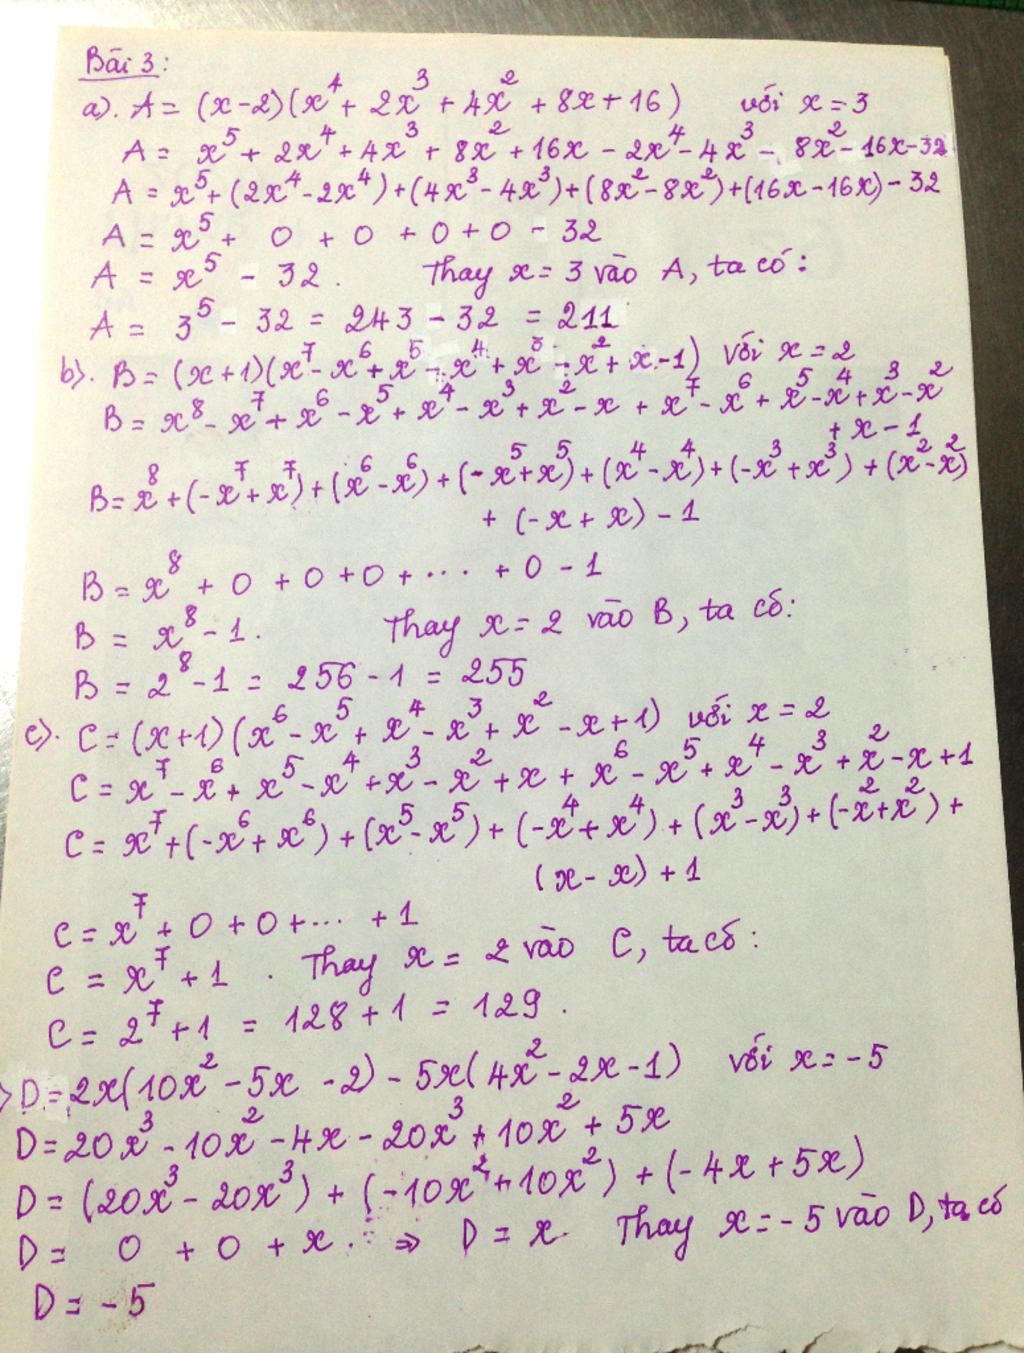 Bài 3:
a). A = (x-2)(x⁴ + 2x³ + 4x² + 8x + 16) với x = 3
A = x⁵ + 2x⁴ + 4x³ + 8x² + 16x - 2x⁴ - 4x³ - 8x² - 16x - 32
A = x⁵ + (2x⁴ - 2x⁴) + (4x³ - 4x³) + (8x² - 8x²) + (16x - 16x) - 32
A = x⁵ + 0 + 0 + 0 + 0 - 32
A = x⁵ - 32. Thay x = 3 vào A, ta có:
A = 3⁵ - 32 = 243 - 32 = 211
b). B = (x+1)(x⁷ - x⁶ + x⁵ - x⁴ + x³ - x² + x - 1) với x = 2
B = x⁸ - x⁷ + x⁶ - x⁵ + x⁴ - x³ + x² - x + x⁷ - x⁶ + x⁵ - x⁴ + x³ - x²
+ x - 1
B = x⁸ + (-x⁷ + x⁷) + (x⁶ - x⁶) + (-x⁵ + x⁵) + (x⁴ - x⁴) + (-x³ + x³) + (x² - x²)
+ (-x + x) - 1
B = x⁸ + 0 + 0 + 0 + ... + 0 - 1
B = x⁸ - 1. Thay x = 2 vào B, ta có:
B = 2⁸ - 1 = 256 - 1 = 255
c). C = (x+1)(x⁶ - x⁵ + x⁴ - x³ + x² - x + 1) với x = 2
C = x⁷ - x⁶ + x⁵ - x⁴ + x³ - x² + x + x⁶ - x⁵ + x⁴ - x³ + x² - x + 1
C = x⁷ + (-x⁶ + x⁶) + (x⁵ - x⁵) + (-x⁴ + x⁴) + (x³ - x³) + (-x² + x²) +
(x - x) + 1
C = x⁷ + 0 + 0 + ... + 1
C = x⁷ + 1. Thay x = 2 vào C, ta có:
C = 2⁷ + 1 = 128 + 1 = 129.
) D = 2x(10x² - 5x - 2) - 5x(4x² - 2x - 1) với x = -5
D = 20x³ - 10x² - 4x - 20x³ + 10x² + 5x
D = (20x³ - 20x³) + (-10x² + 10x²) + (-4x + 5x)
D = 0 + 0 + x. ⇒ D = x. Thay x = -5 vào D, ta có
D = -5